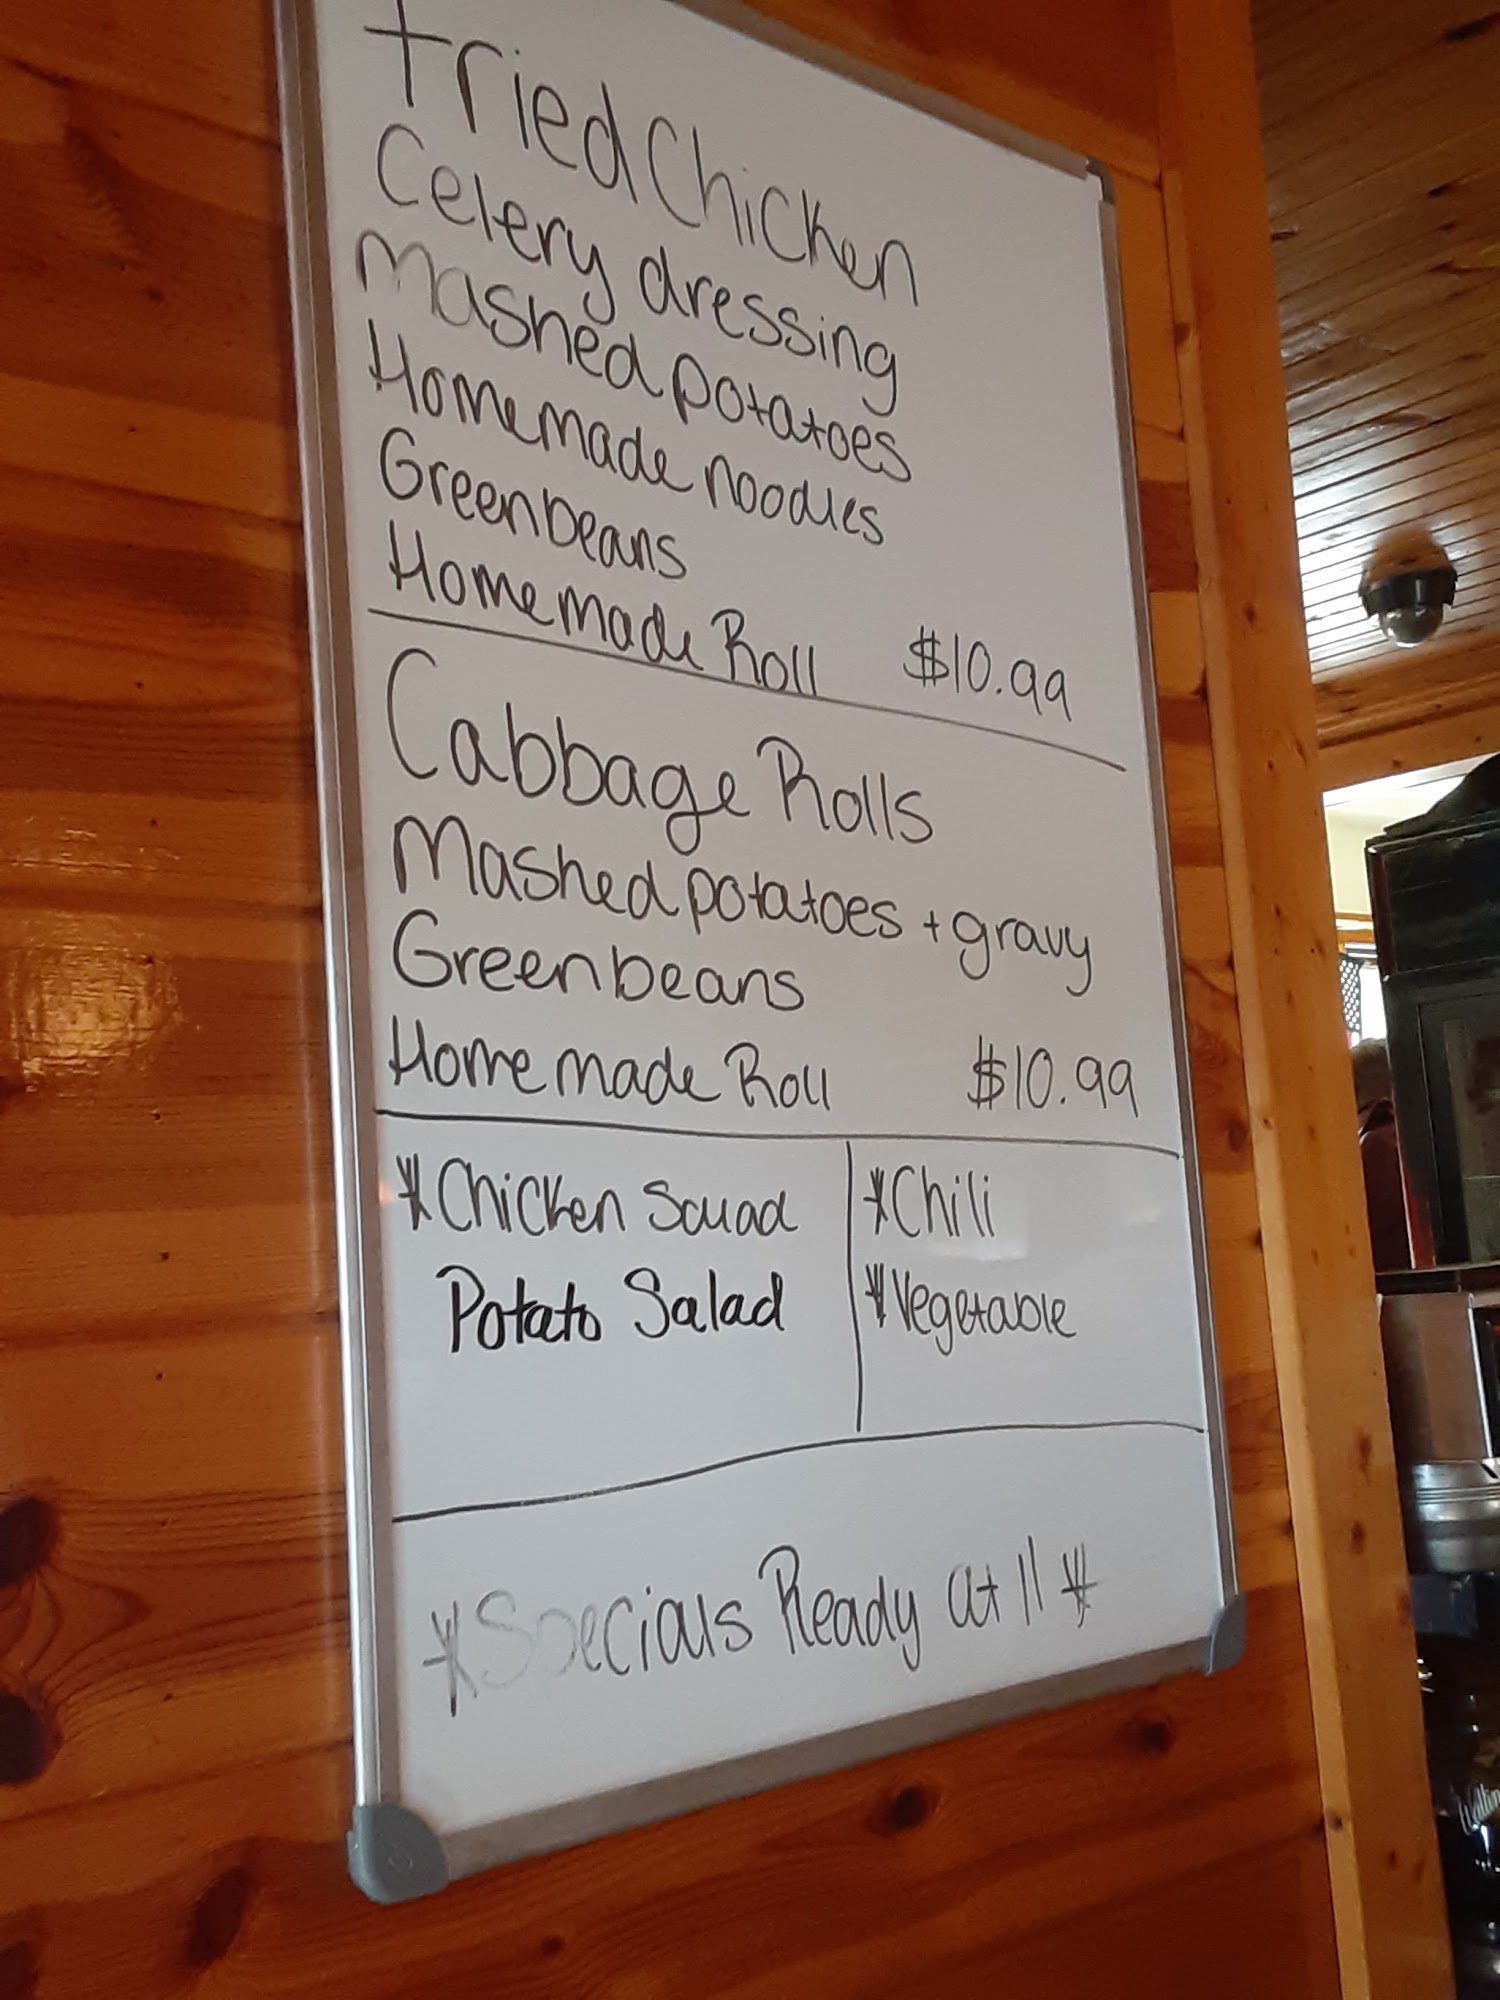 Fried Chicken
Celery dressing
Mashed potatoes
Homemade noodles
Greenbeans
Homemade Roll $10.99
Cabbage Rolls
Mashed potatoes + gravy
Greenbeans
Homemade Roll $10.99
*Chicken Salad
Potato Salad
*Chili
*Vegetable
*Specials Ready at 11*